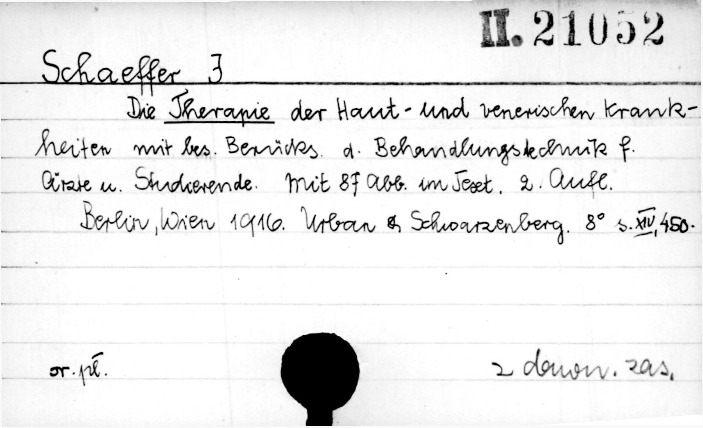 II. 21052
Schaeffer J
Die Therapie der Haut- und venerischen Krank-
heiten mit bes. Berücks. d. Behandlungstechnik f.
Ärzte u. Studierende. Mit 87 Abb. im Text. 2. Aufl.
Berlin, Wien 1916. Urban & Schwarzenberg. 8° s. XIV, 450.
or. pł. 2 dawn. zas.